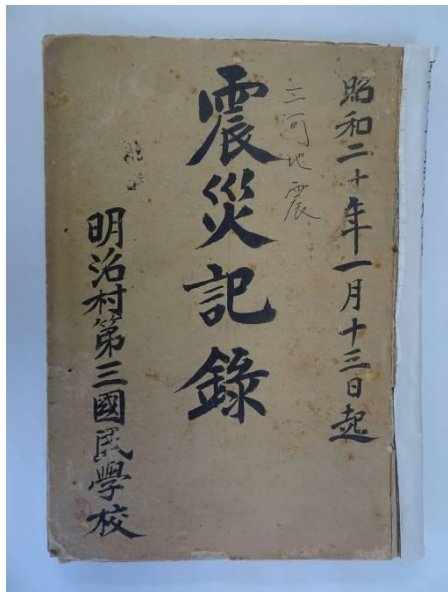 昭和二十年一月十三日起
三河地震
震災記録
明治村第三國民學校